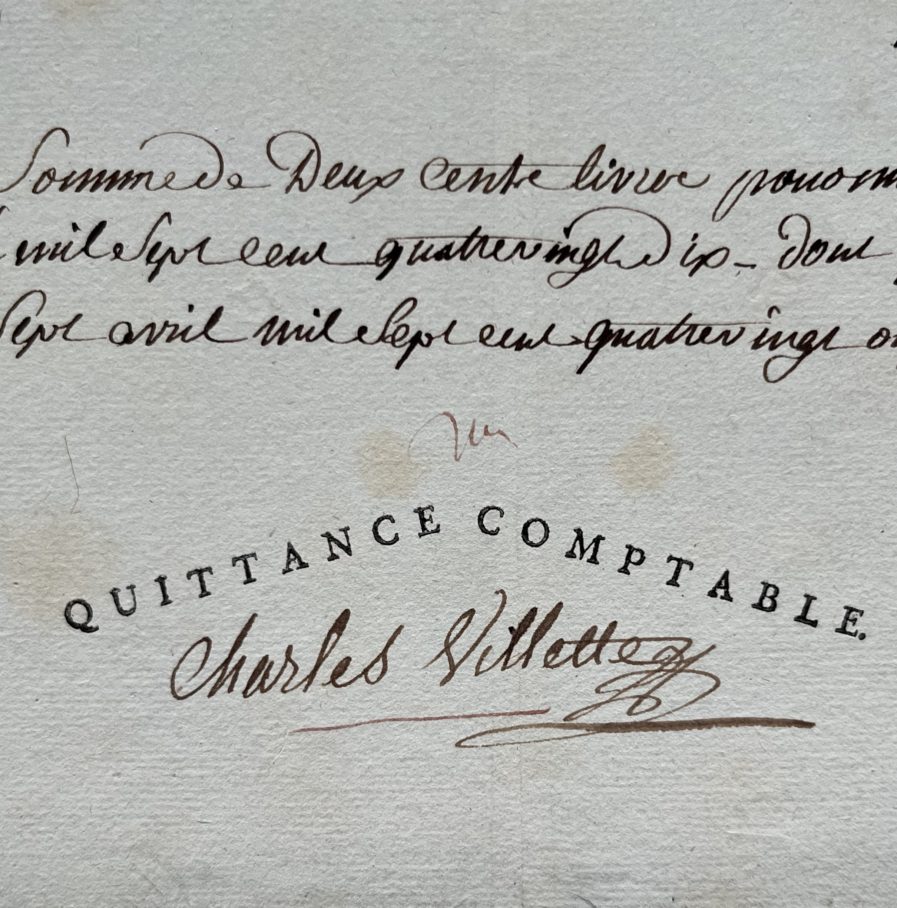 Somme de Deux Cents livres pour
mil Sept cent quatrevingt dix _ dont
Sept avril mil Sept cent quatrevingt
QUITTANCE COMPTABLE.
Charles Villette